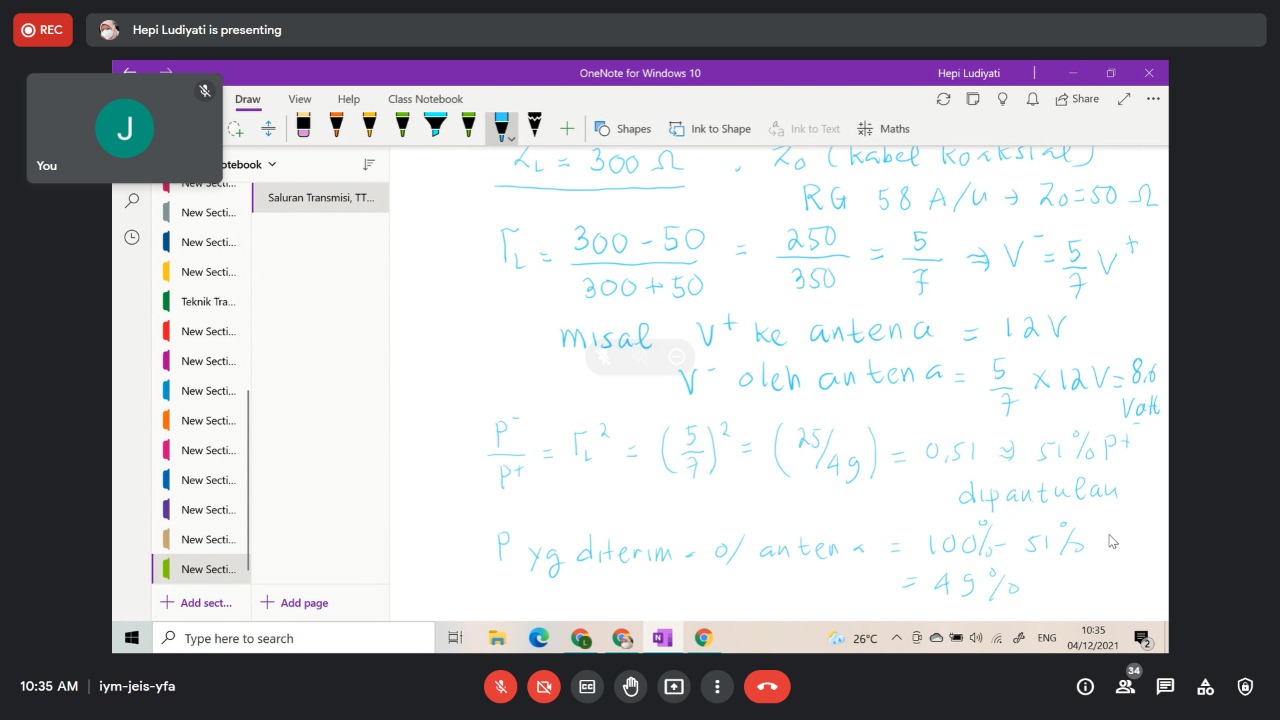 REC
Hepi Ludiyati is presenting
OneNote for Windows 10
Hepi Ludiyati
J
You
Draw View Help Class Notebook
Share
Shapes
Ink to Shape
Ink to Text
Maths
otebook
New Secti...
New Secti...
New Secti...
New Secti...
Teknik Tra...
New Secti...
New Secti...
New Secti...
New Secti...
New Secti...
New Secti...
New Secti...
New Secti...
New Secti...
Add sect...
Saluran Transmisi, TT...
Add page
ZL = 300 Ω , Zo (kabel koaksial)
RG 58 A/u → Zo=50 Ω
ΓL = (300 - 50)/(300 + 50) = 250/350 = 5/7 ⇒ V⁻ = 5/7 V⁺
misal V⁺ ke antena = 12V
V⁻ oleh antena = 5/7 x 12V = 8,6
Vatt
P⁻/P⁺ = ΓL² = (5/7)² = (25/49) = 0,51 ⇒ 51% P⁺
dipantulan
P yg diterima o/ antena = 100% - 51%
= 49%
Type here to search
26°C
ENG
10:35
04/12/2021
2
10:35 AM | iym-jeis-yfa
34